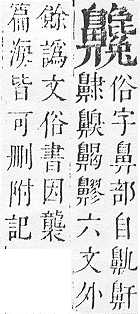 俗字鼻部自鼽鼾
齂齅齃䶎六文外
餘譌文俗書因襲
篇海皆可刪附記